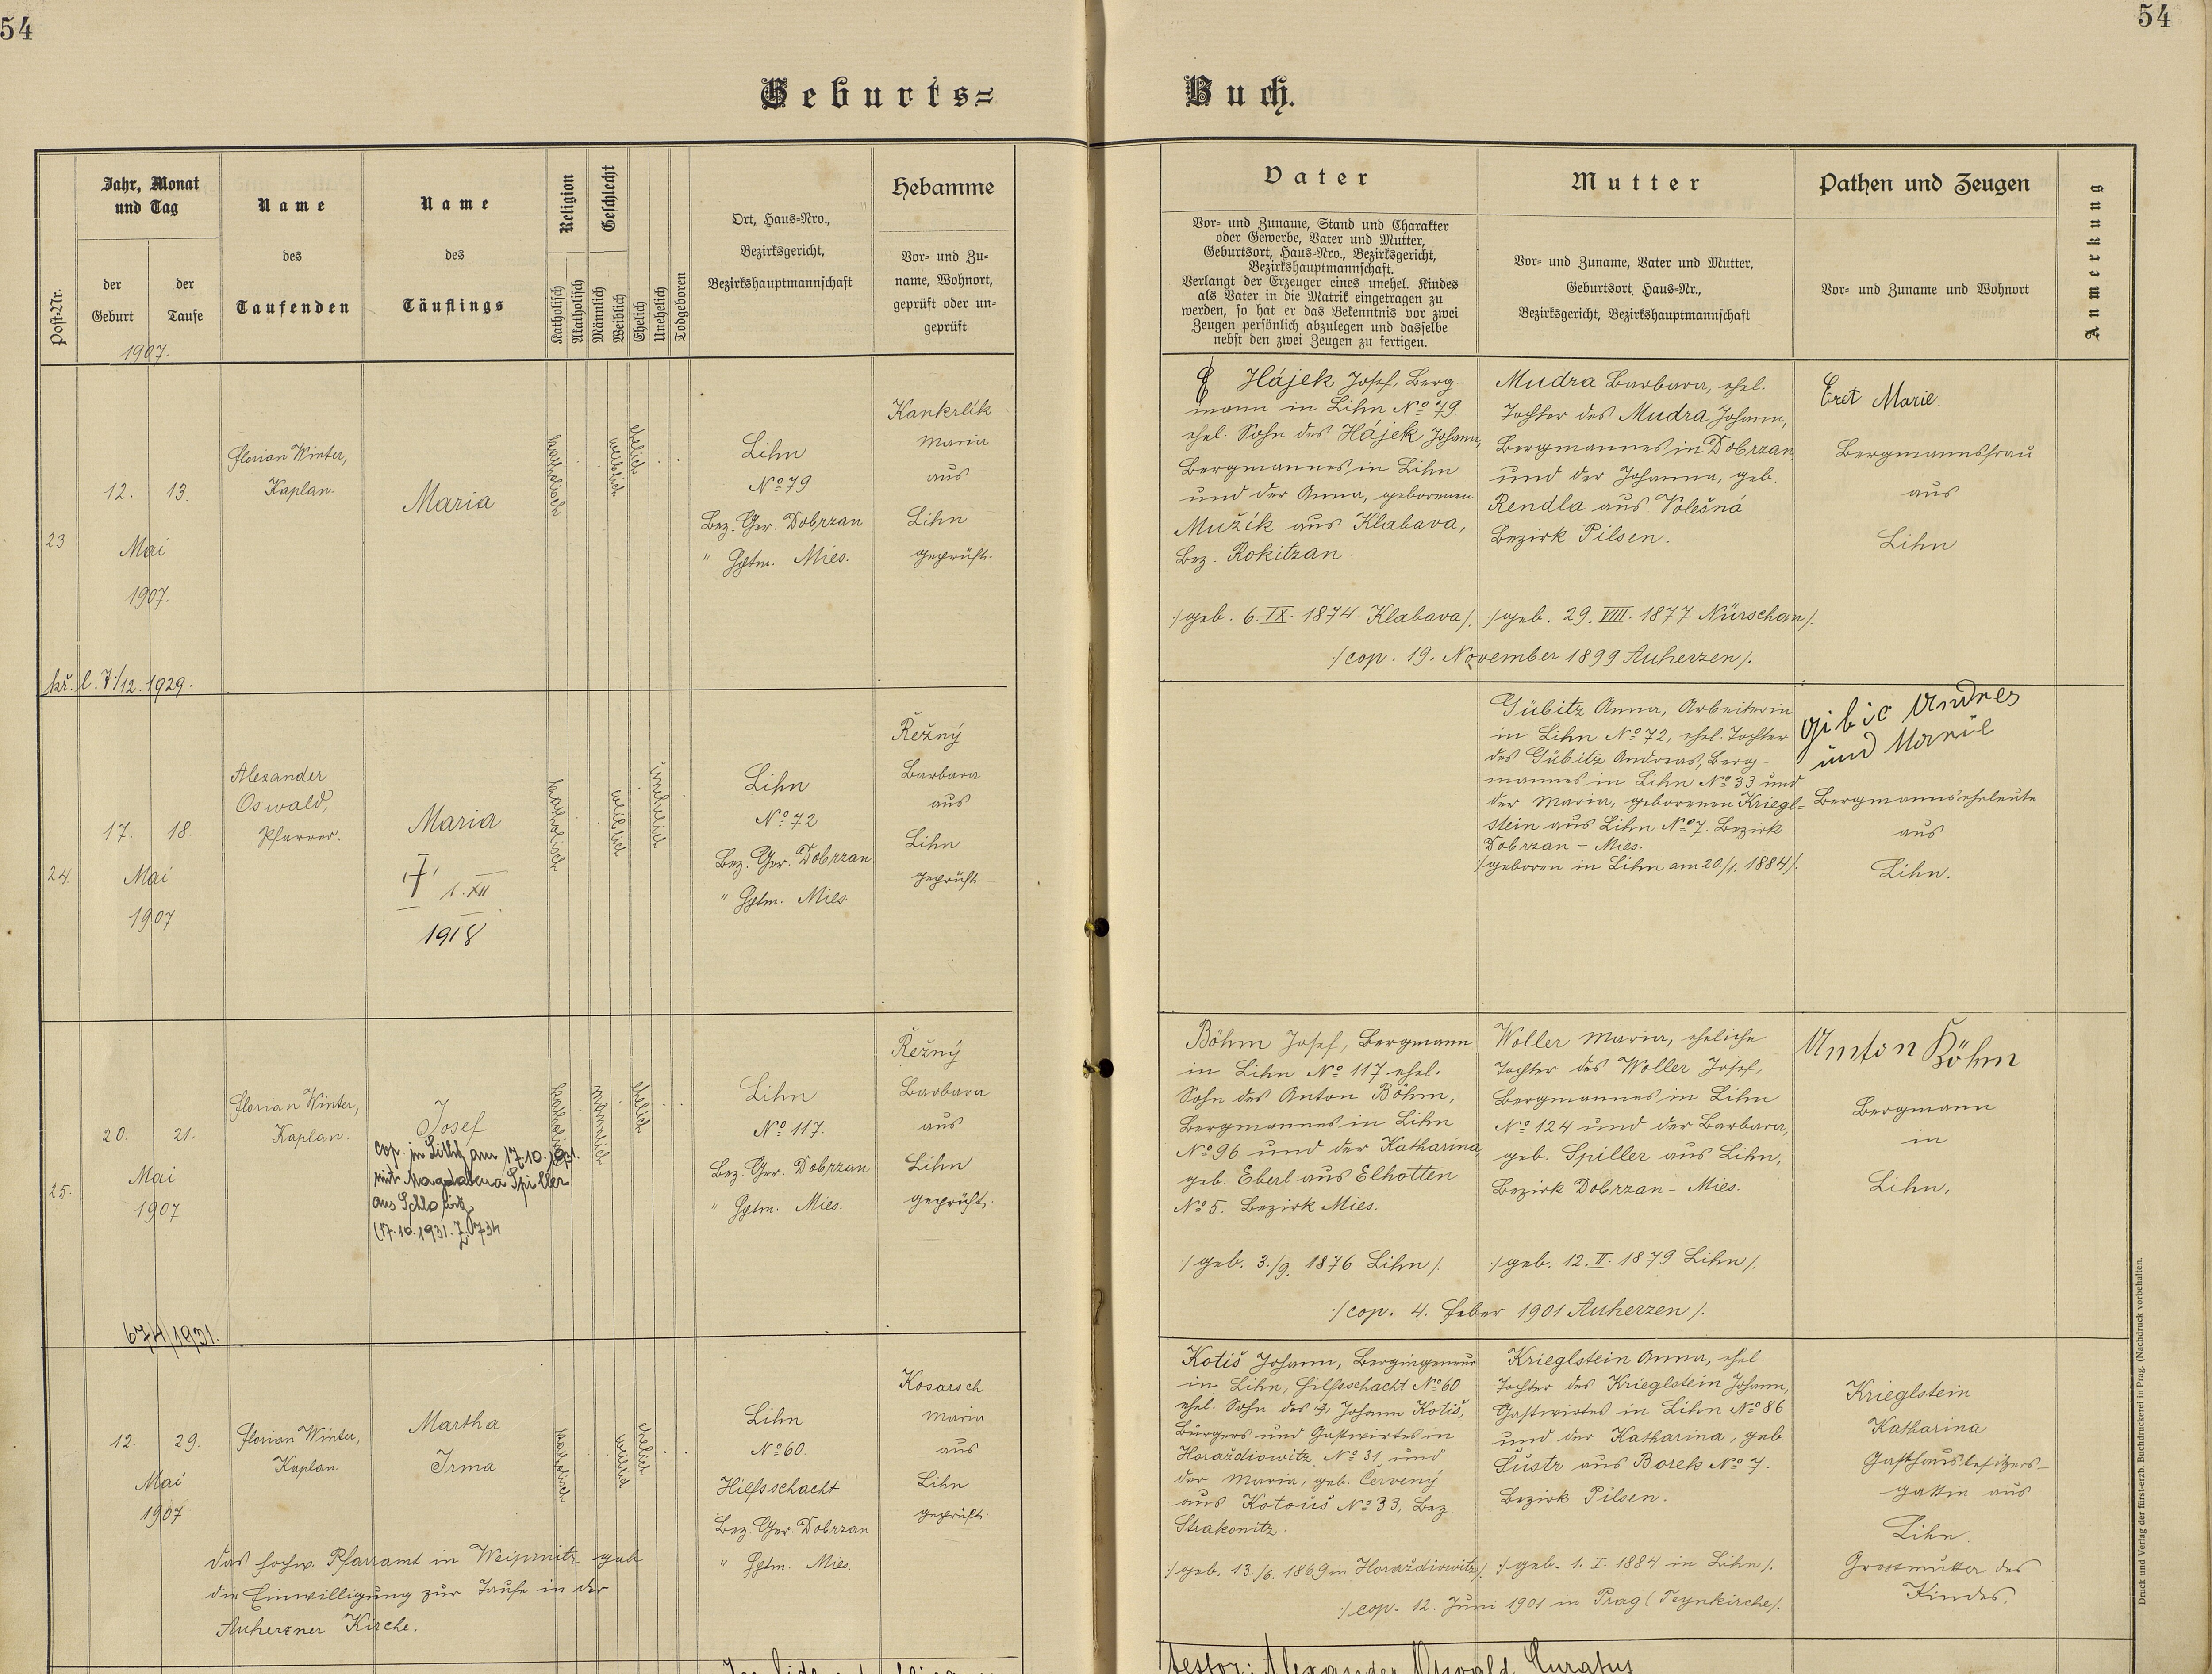 54
54
Geburts=
Buch.
Jahr, Monat
und Tag
der
Geburt
der
Taufe
1907.
Post-Nr.
Name
des
Taufenden
Name
des
Täuflings
Religion
Katholisch
Akatholisch
Geschlecht
Männlich
Weiblich
Ehelich
Unehelich
Todgeboren
Ort, Haus=Nro.,
Bezirksgericht,
Bezirkshauptmannschaft
Hebamme
Vor= und Zu=
name, Wohnort,
geprüft oder un=
geprüft
Vater
Vor= und Zuname, Stand und Charakter
oder Gewerbe, Vater und Mutter,
Geburtsort, Haus=Nro., Bezirksgericht,
Bezirkshauptmannschaft.
Verlangt der Erzeuger eines unehel. Kindes
als Vater in die Matrik eingetragen zu
werden, so hat er das Bekenntnis vor zwei
Zeugen persönlich abzulegen und dasselbe
nebst den zwei Zeugen zu fertigen.
Mutter
Vor= und Zuname, Vater und Mutter,
Geburtsort, Haus=Nr.,
Bezirksgericht, Bezirkshauptmannschaft
Pathen und Zeugen
Vor= und Zuname und Wohnort
Anmerkung
23
12. 13.
Mai
1907.
kř. l. 7/12. 1929.
Florian Winter,
Kaplan.
Maria
katholisch
weiblich
ehelich
Lihn
No 79
Bez. Ger. Dobrzan
" Hptm. Mies.
Kankrlik
Maria
aus
Lihn
geprüft.
Hájek Josef, Berg-
mann in Lihn No 79.
ehel. Sohn des Hájek Johann,
Bergmannes in Lihn
und der Anna, geborenen
Mužík aus Klabava,
Bez. Rokitzan.
/geb. 6. IX. 1874 Klabava/.
Mudra Barbara, ehel.
Tochter des Mudra Johann,
Bergmannes in Dobrzan
und der Johanna, geb.
Rendla aus Volešná
Bezirk Pilsen.
/geb. 29. VIII. 1877 Nürschan/.
/cop. 19. November 1899 Auherzen/.
Marie.
Bergmannsfrau
aus
Lihn
24.
17. 18.
Mai
1907
Alexander
Oswald,
Pfarrer.
Maria
† 1. XII
1918
katholisch
weiblich
unehelich
Lihn
No 72
Bez. Ger. Dobrzan
" Hptm. Mies.
Řežný
Barbara
aus
Lihn
geprüft.
Gübitz Anna, Arbeiterin
in Lihn No 72, ehel. Tochter
des Gübitz Andreas, Berg-
mannes in Lihn No 33 und
der Maria, geborenen Kriegl-
stein aus Lihn No 7. Bezirk
Dobrzan - Mies.
/geboren in Lihn am 20./1. 1884/.
Gibic Andres
und
Bergmannseheleute
aus
Lihn.
25.
20. 21.
Mai
1907
674/1931.
Florian Winter,
Kaplan.
Josef
cop. in am 17.10.
mit Magdalena Spiller
aus
(17.10.1931.
katholisch
männlich
ehelich
Lihn
No 117.
Bez. Ger. Dobrzan
" Hptm. Mies.
Řežný
Barbara
aus
Lihn
geprüft.
Böhm Josef, Bergmann
in Lihn No 117 ehel.
Sohn des Anton Böhm,
Bergmannes in Lihn
No 96 und der Katharina,
geb. Eberl aus Elhotten
No 5. Bezirk Mies.
/geb. 3./9. 1876 Lihn/.
Woller Maria, eheliche
Tochter des Woller Josef,
Bergmannes in Lihn
No 124 und der Barbara,
geb. Spiller aus Lihn,
Bezirk Dobrzan - Mies.
/geb. 12. II. 1879 Lihn/.
/cop. 4. Feber 1901 Auherzen/.
Anton Böhm
Bergmann
in
Lihn.
12. 29.
Mai
1907
Florian Winter,
Kaplan.
Martha
Irma
katholisch
weiblich
ehelich
Lihn
No 60.
Hilfsschacht
Bez. Ger. Dobrzan
" Hptm. Mies.
Kosarsch
Maria
aus
Lihn
geprüft.
das hochw. Pfarramt in Weipernitz gab
die Einwilligung zur Taufe in der
Auherzner Kirche.
Kotiš Johann, Bergingenieur
in Lihn, Hilfsschacht No 60
ehel. Sohn des † Johann Kotiš,
Bürgers und Gastwirtes in
Horaždiowitz, No 31, und
der Maria, geb. Červený
aus Kotouš No 33, Bez.
Strakonitz.
/geb. 13./6. 1869 in Horaždiowitz/.
Krieglstein Anna, ehel.
Tochter des Krieglstein Johann,
Gastwirtes in Lihn No 86
und der Katharina, geb.
Šustr aus Borek No 7.
Bezirk Pilsen.
/geb. 1. I. 1884 in Lihn/.
/cop. 12. Juni 1901 in Prag (Teynkirche)/.
Krieglstein
Katharina
Gasthausbesitzers-
gattin aus
Lihn.
Grossmutter des
Kindes.
Alexander Oswald, Curatus
Druck und Verlag der fürst-erzb. Buchdruckerei in Prag. (Nachdruck vorbehalten.